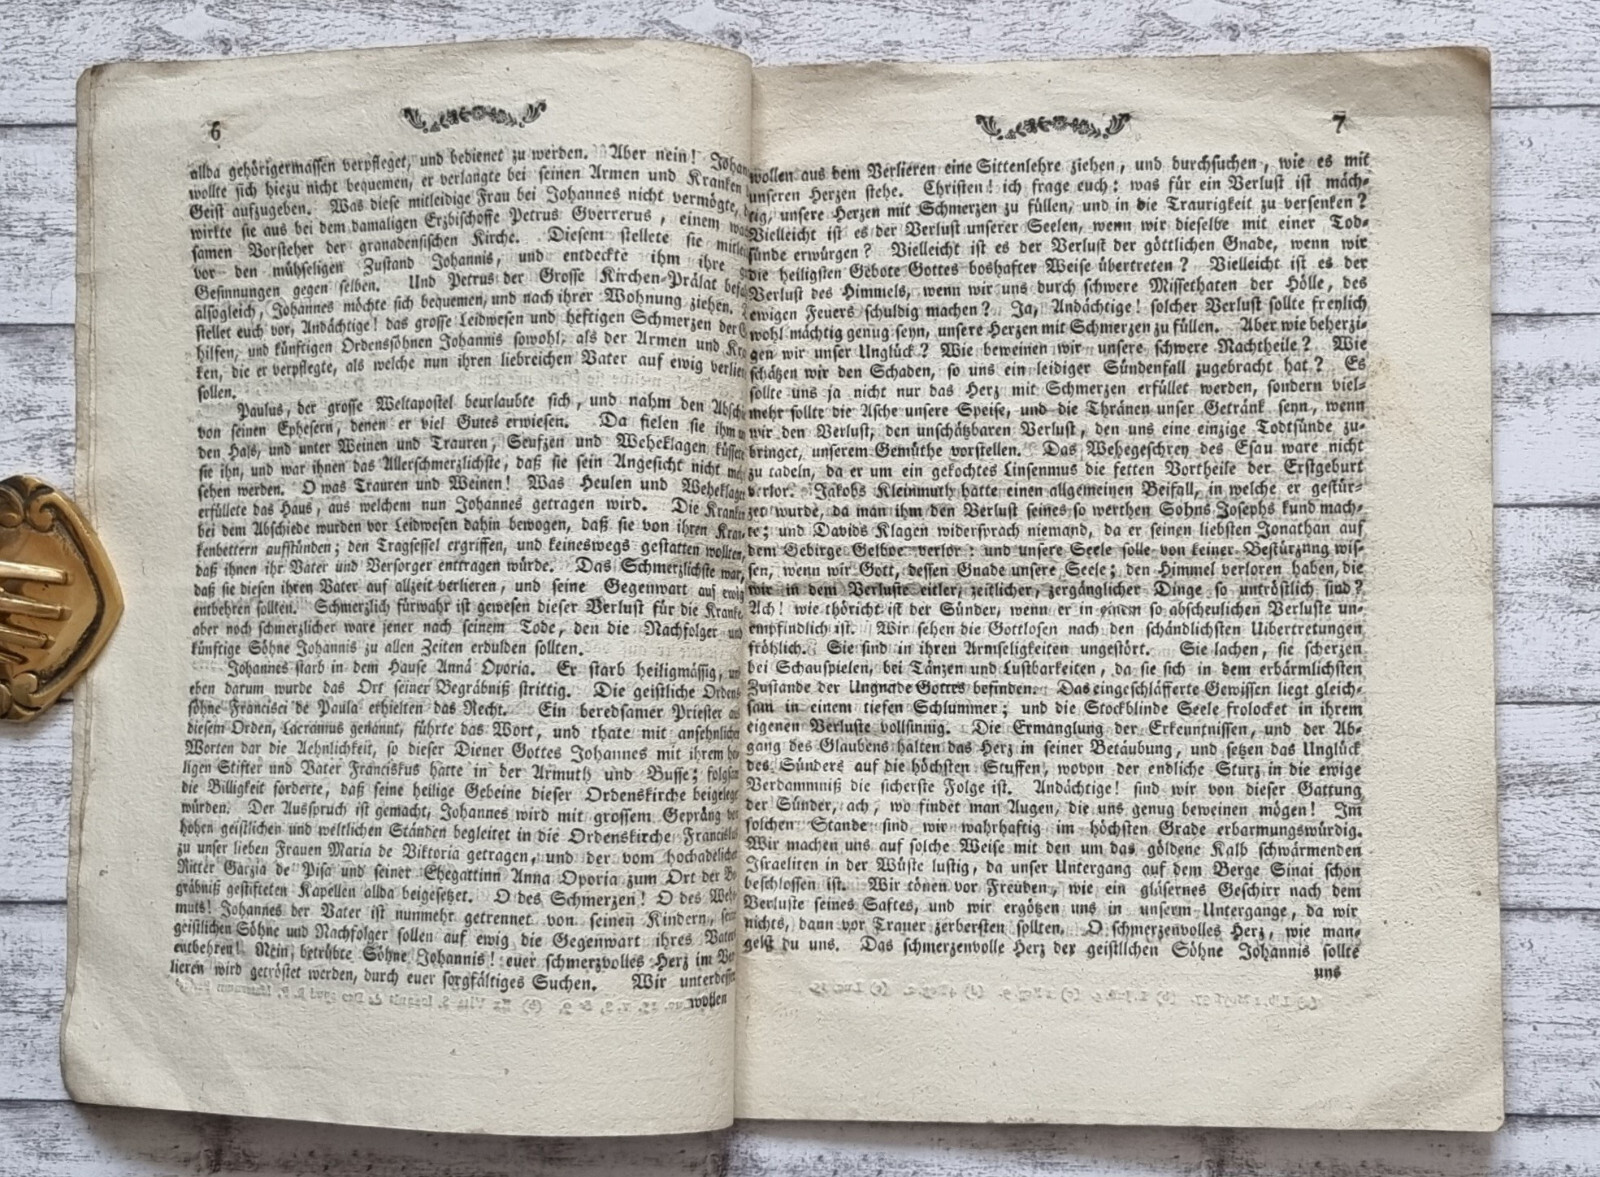 6
allda gehörigermassen verpfleget, und bedienet zu werden. Aber nein! Johan
wollte sich hiezu nicht bequemen, er verlangte bei seinen Armen und Kranken
Geist aufzugeben. Was diese mitleidige Frau bei Johannes nicht vermögte,
wirkte sie aus bei dem damaligen Erzbischoffe Petrus Gverrerus, einem
samen Vorsteher der granadensischen Kirche. Diesem stellete sie
vor den mühseligen Zustand Johannis, und entdeckte ihm ihre
Gesinnungen gegen selben. Und Petrus der Grosse Kirchen-Prälat
alsogleich, Johannes möchte sich bequemen, und nach ihrer Wohnung ziehen.
stellet euch vor, Andächtige! das grosse Leidwesen und heftigen Schmerzen der
hilfen, und künftigen Ordenssöhnen Johannis sowohl, als der Armen und Kra
ken, die er verpflegte, als welche nun ihren liebreichen Vater auf ewig verlie
sollen.
Paulus, der grosse Weltapostel beurlaubte sich, und nahm den Absch
von seinen Ephesern, denen er viel Gutes erwiesen. Da fielen sie ihm
den Hals, und unter Weinen und Trauren, Seufzen und Weheklagen küssen
sie ihn, und war ihnen das Allerschmerzlichste, daß sie sein Angesicht nicht
sehen werden. O was Trauren und Weinen! Was Heulen und Weheklagen
erfüllete das Haus, aus welchem nun Johannes getragen wird. Die Kranken
bei dem Abschiede wurden vor Leidwesen dahin bewogen, daß sie von ihren Kran-
kenbettern aufstünden; den Tragsessel ergriffen, und keineswegs gestatten wollten,
daß ihnen ihr Vater und Versorger enttragen würde. Das Schmerzlichste war,
daß sie diesen ihren Vater auf allzeit verlieren, und seine Gegenwart auf ewig
entbehren sollten. Schmerzlich fürwahr ist gewesen dieser Verlust für die Kranke,
aber noch schmerzlicher ware jener nach seinem Tode, den die Nachfolger und
künftige Söhne Johannis zu allen Zeiten erdulden sollten.
Johannes starb in dem Hause Annä Oporia. Er starb heiligmässig, un
eben darum wurde das Ort seiner Begräbniß strittig. Die geistliche Ordens
söhne Francisci de Paula erhielten das Recht. Ein beredsamer Priester
diesem Orden, Lacramus genannt, führte das Wort, und thate mit ansehnliche
Worten dar die Aehnlichkeit, so dieser Diener Gottes Johannes mit ihrem
ligen Stifter und Vater Franciskus hatte in der Armuth und Busse; folgsam
die Billigkeit forderte, daß seine heilige Gebeine dieser Ordenskirche beigelegt
würden. Der Ausspruch ist gemacht, Johannes wird mit grossem Gepräng
hohen geistlichen und weltlichen Ständen begleitet in die Ordenskirche Francisci
zu unser lieben Frauen Maria de Viktoria getragen, und der vom hochadeliche
Ritter Garzia de Pisa und seiner Ehegattinn Anna Oporia zum Ort der Be
gräbniß gestifteten Kapellen allda beigesetzet. O des Schmerzen! O des Weh
muts! Johannes der Vater ist nunmehr getrennet von seinen Kindern,
geistlichen Söhne und Nachfolger sollen auf ewig die Gegenwart ihres Vaters
entbehren! Nein, betrübte Söhne Johannis! euer schmerzvolles Herz im Ver
lieren wird getröstet werden, durch euer sorgfältiges Suchen. Wir unterdessen
wollen
7
wollen aus dem Verlieren eine Sittenlehre ziehen, und durchsuchen, wie es mit
unseren Herzen stehe. Christen! ich frage euch: was für ein Verlust ist mäch-
tig, unsere Herzen mit Schmerzen zu füllen, und in die Traurigkeit zu versenken?
Vielleicht ist es der Verlust unserer Seelen, wenn wir dieselbe mit einer Tod-
sünde erwürgen? Vielleicht ist es der Verlust der göttlichen Gnade, wenn wir
die heiligsten Gebote Gottes boshafter Weise übertreten? Vielleicht ist es der
Verlust des Himmels, wenn wir uns durch schwere Missethaten der Hölle, des
ewigen Feuers schuldig machen? Ja, Andächtige! solcher Verlust sollte freylich
wohl mächtig genug seyn, unsere Herzen mit Schmerzen zu füllen. Aber wie beherzi-
gen wir unser Unglück? Wie beweinen wir unsere schwere Nachtheile? Wie
schätzen wir den Schaden, so uns ein leidiger Sündenfall zugebracht hat? Es
sollte uns ja nicht nur das Herz mit Schmerzen erfüllet werden, sondern viel-
mehr sollte die Asche unsere Speise, und die Thränen unser Getränk seyn, wenn
wir den Verlust, den unschätzbaren Verlust, den uns eine einzige Todtsünde zu-
bringet, unserem Gemüthe vorstellen. Das Wehegeschrey des Esau ware nicht
zu tadeln, da er um ein gekochtes Linsenmus die fetten Vortheile der Erstgeburt
verlor. Jakobs Kleinmuth hatte einen allgemeinen Beifall, in welche er gestür-
zen wurde, da man ihm den Verlust seines so werthen Sohns Josephs kund mach-
te; und Davids Klagen widersprach niemand, da er seinen liebsten Jonathan auf
dem Gebirge Gelboe verlor: und unsere Seele solle von keiner Bestürzung wis-
sen, wenn wir Gott, dessen Gnade unsere Seele; den Himmel verloren haben, die
wir in dem Verluste eitler, zeitlicher, zergänglicher Dinge so untröstlich sind?
Ach! wie thöricht ist der Sünder, wenn er in einem so abscheulichen Verluste un-
empfindlich ist. Wir sehen die Gottlosen nach den schändlichsten Uibertretungen
fröhlich. Sie sind in ihren Armseligkeiten ungestört. Sie lachen, sie scherzen
bei Schauspielen, bei Tänzen und Lustbarkeiten, da sie sich in dem erbärmlichsten
Zustande der Ungnade Gottes befinden. Das eingeschläfferte Gewissen liegt gleich-
sam in einem tiefen Schlummer; und die Stockblinde Seele frolocket in ihrem
eigenen Verluste vollsinnig. Die Ermanglung der Erkenntnissen, und der Ab-
gang des Glaubens halten das Herz in seiner Betäubung, und setzen das Unglück
des Sünders auf die höchsten Stuffen, wovon der endliche Sturz in die ewige
Verdammniß die sicherste Folge ist. Andächtige! sind wir von dieser Gattung
der Sünder, ach, wo findet man Augen, die uns genug beweinen mögen! Im
solchen Stande sind wir wahrhaftig im höchsten Grade erbarmungswürdig.
Wir machen uns auf solche Weise mit den um das göldene Kalb schwärmenden
Israeliten in der Wüste lustig, da unser Untergang auf dem Berge Sinai schon
beschlossen ist. Wir tönen vor Freuden, wie ein gläsernes Geschirr nach dem
Verluste seines Saftes, und wir ergötzen uns in unserm Untergange, da wir
nichts, dann vor Trauer zerbersten sollten. O schmerzenvolles Herz, wie man-
gelst du uns. Das schmerzenvolle Herz der geistlichen Söhne Johannis sollte
uns